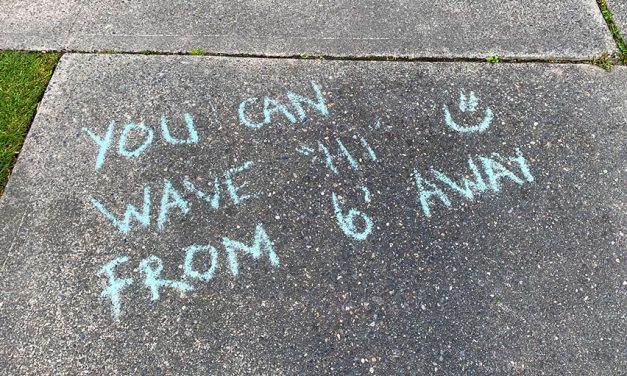 YOU CAN
WAVE "HI"
FROM 6' AWAY